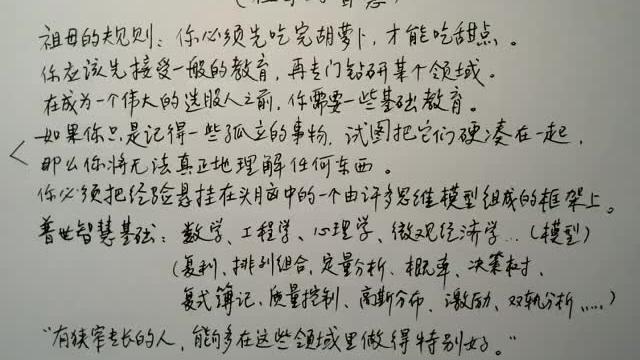 祖母的规则：你必须先吃完胡萝卜，才能吃甜点。
你应该先接受一般的教育，再专门钻研某个领域。
在成为一个伟大的选股人之前，你需要一些基础教育。
如果你只是记得一些孤立的事物，试图把它们硬凑在一起，
那么你将无法真正地理解任何东西。
你必须把经验悬挂在头脑中的一个由许多思维模型组成的框架上。
普世智慧基础：数学、工程学、心理学、微观经济学…（模型）
（复利、排列组合、定量分析、概率、决策树、
复式簿记、质量控制、高斯分布、激励、双轨分析……）
“有狭窄专长的人，能够在这些领域里做得特别好。”